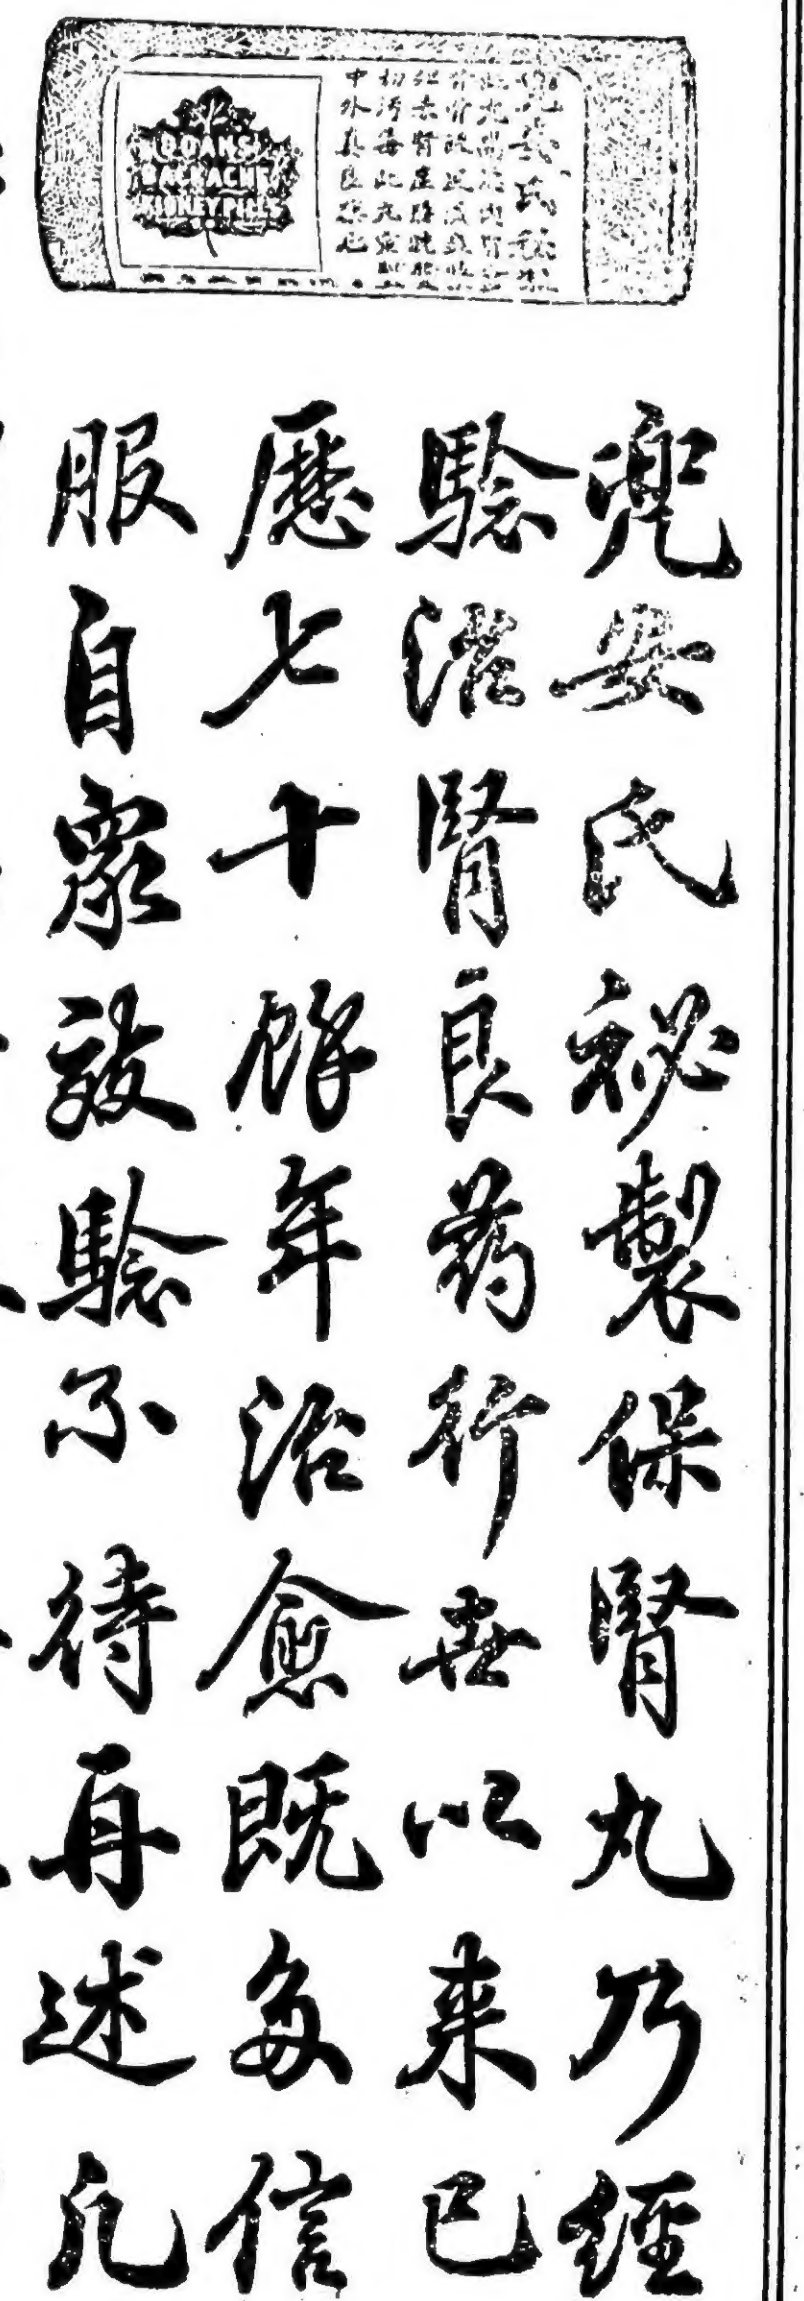 DOAN'S
BACKACHE
KIDNEY PILLS
兜安氏秘製保腎丸乃經
驗治腎良葯行世以来已
歷七十餘年治愈既多信
服自眾效驗不待再述凡